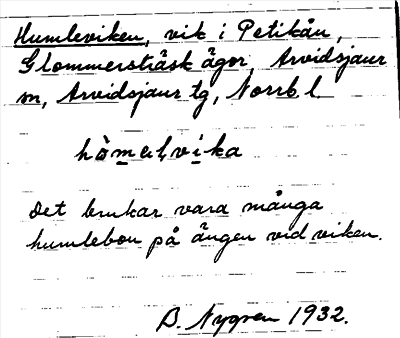 Humleviken, vik i Petikån,
Glommersträsk ägor, Arvidsjaur
sn, Arvidsjaur tg, Norrb. l.
Det brukar vara många
humlebon på ängen vid viken.
B. Nygren 1932.